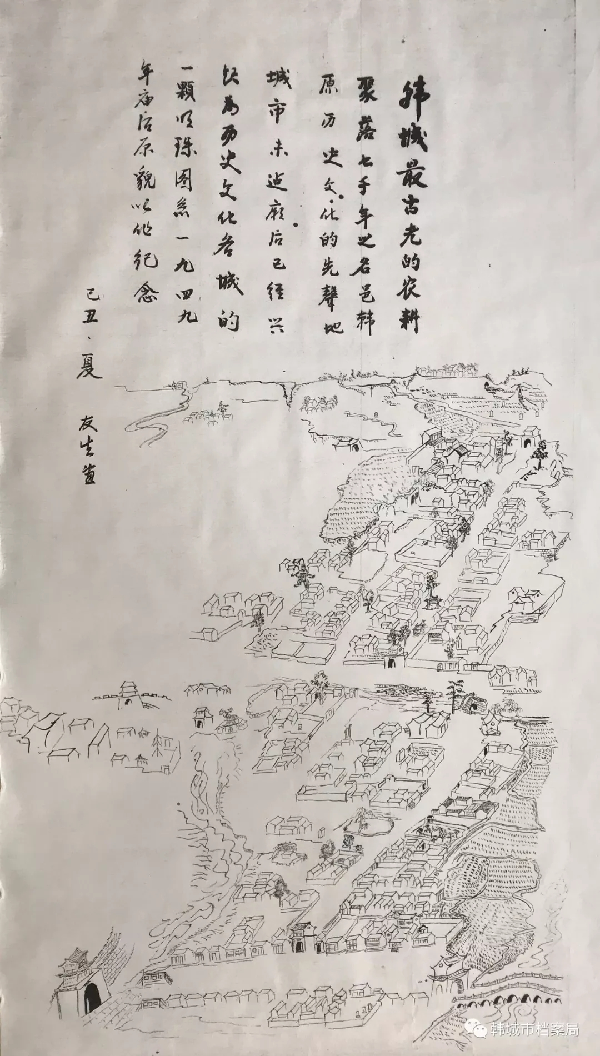 韩城最古老的农耕
聚落七千年之名邑韩
原历史文化的先聲地
城市未廟后已经兴
为历史文化名城的
一顆明珠图系一九四九
年庙后原貌以作纪念
己丑·夏 友生画
韩城市档案局